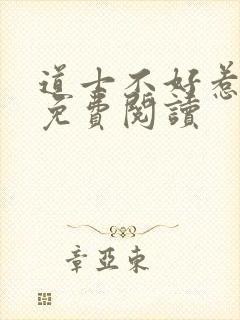 道士不好惹
免費閱讀
章亞東